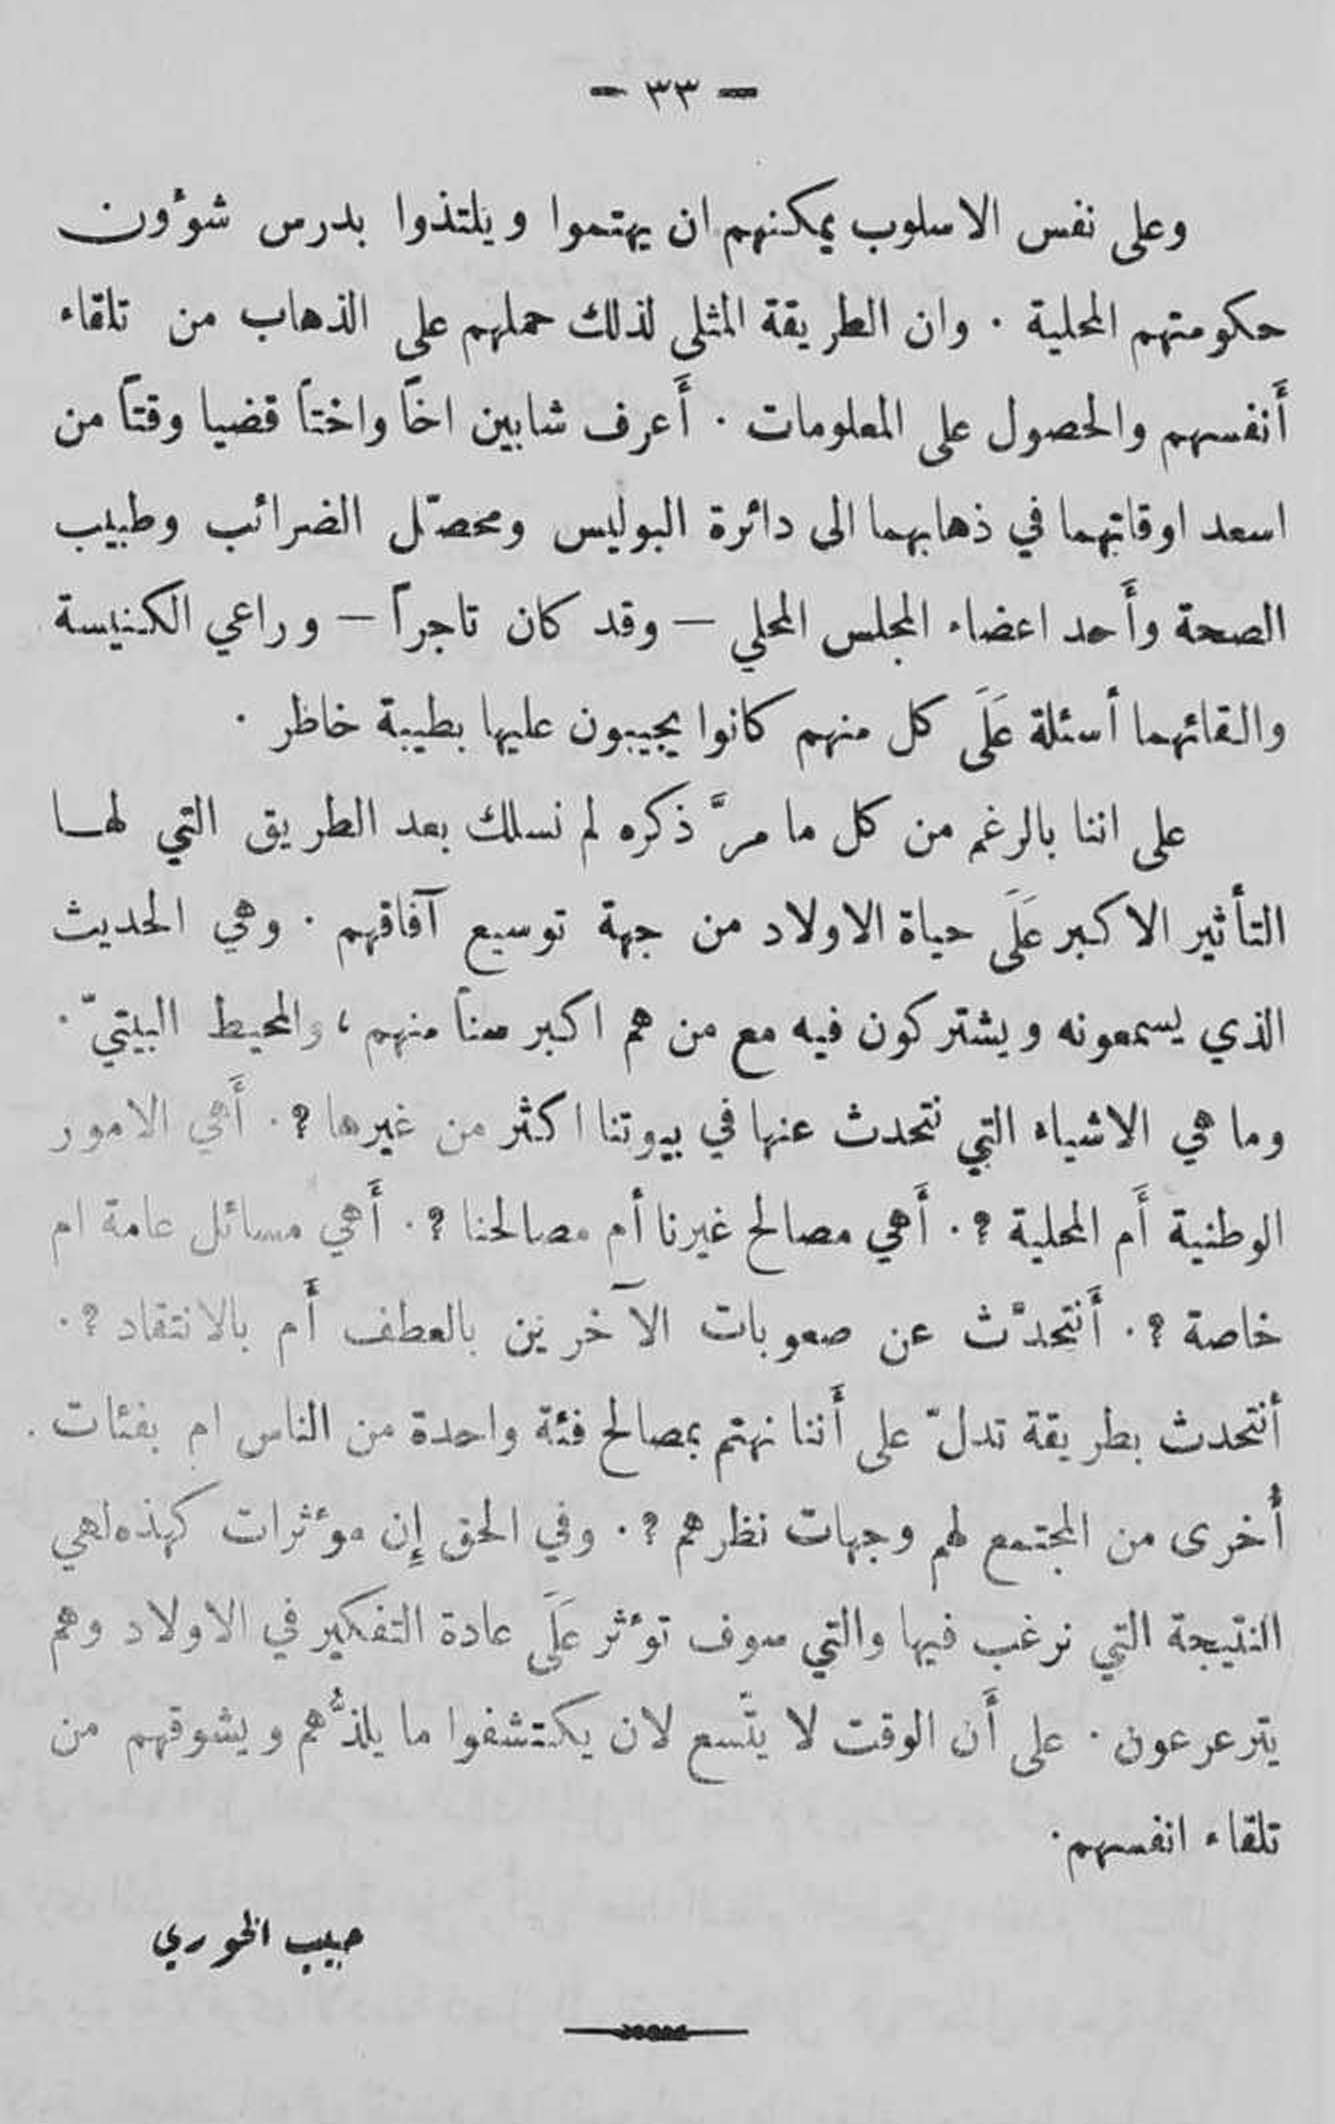 — ٣٣ —
وعلى نفس الاسلوب يمكنهم ان يهتموا ويلتذوا بدرس شوٴون
حكومتهم المحلية . وان الطريقة المثلى لذلك حملهم على الذهاب من تلقاء
أَنفسهم والحصول على المعلومات . أَعرف شابين اخاً واختاً قضيا وقتاً من
اسعد اوقاتهما في ذهابهما الى دائرة البوليس ومحصّل الضرائب وطبيب
الصحة وأَحد اعضاء المجلس المحلي — وقد كان تاجراً — وراعي الكنيسة
والقائهما أسئلة عَلَى كل منهم كانوا يجيبون عليها بطيبة خاطر .
على اننا بالرغم من كل ما مرَّ ذكره لم نسلك بعد الطريق التي لها
التأثير الاكبر عَلَى حياة الاولاد من جهة توسيع آفاقهم . وهي الحديث
الذي يسمعونه ويشتركون فيه مع من هم اكبر سناً منهم ، والمحيط البيتيّ .
وما هي الاشياء التي نتحدث عنها في بيوتنا اكثر من غيرها ؟ . أَهي الامور
الوطنية أَم المحلية ؟ . أَهي مصالح غيرنا أم مصالحنا ؟ . أَهي مسائل عامة ام
خاصة ؟ . أَنتحدَّث عن صعوبات الآخرين بالعطف أَم بالانتقاد ؟ .
أنتحدث بطريقة تدلّ على أَننا نهتم بمصالح فئة واحدة من الناس ام بفئات .
أُخرى من المجتمع لهم وجهات نظرهم ؟ . وفي الحق إِن موٴثرات كهذه لهي
النتيجة التي نرغب فيها والتي سوف توٴثر عَلَى عادة التفكير في الاولاد وهم
يترعرعون . على أَن الوقت لا يتّسع لان يكتشفوا ما يلذُّهم ويشوقهم من
تلقاء انفسهم .
حبيب الخوري